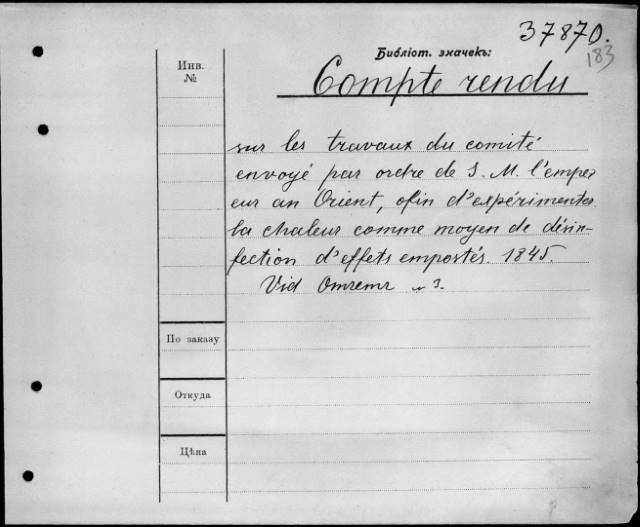 37870.
183
Библіот. значекъ:
Инв.
№
Compte rendu
sur les travaux du comité
envoyé par ordre de S. M. l'emper
eur an Orient, afin d'expérimenter
la chaleur comme moyen de désin-
fection d'effets empostés. 1845.
Vid Отчетъ
По заказу
Откуда
Цѣна